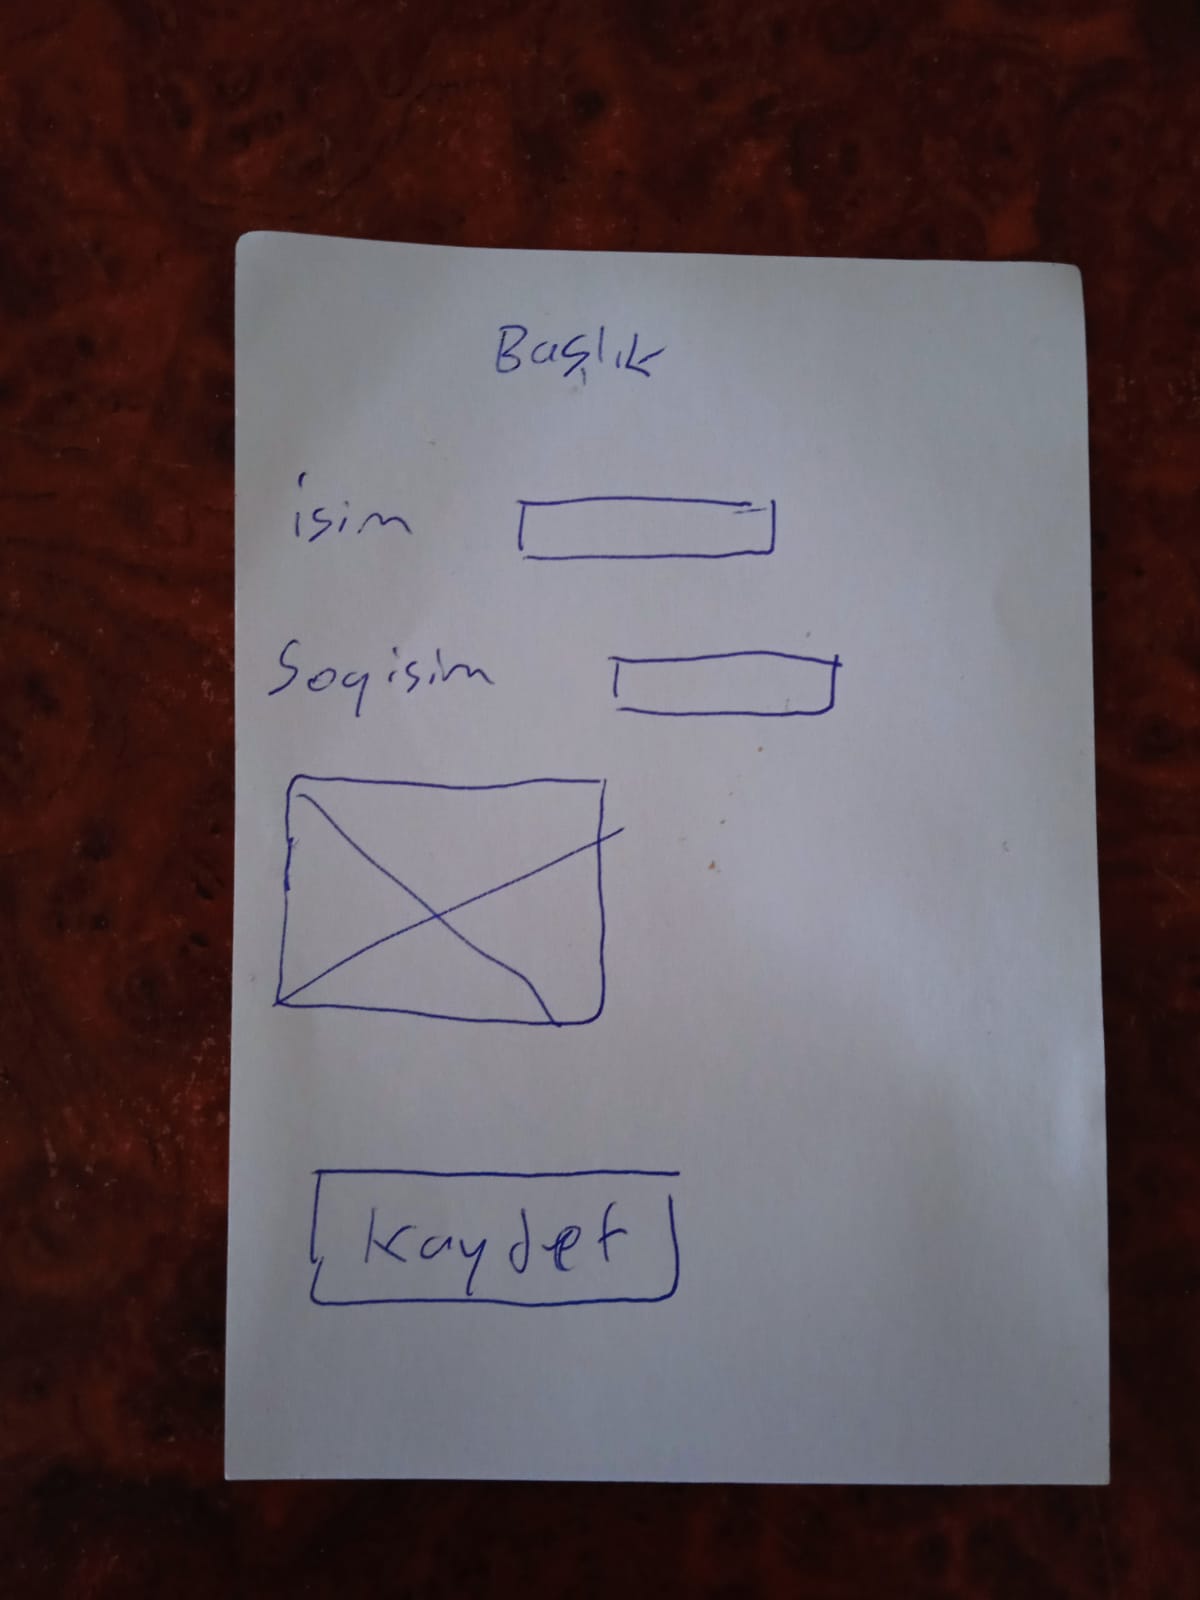 Başlık
isim
Soyisim
Kaydet